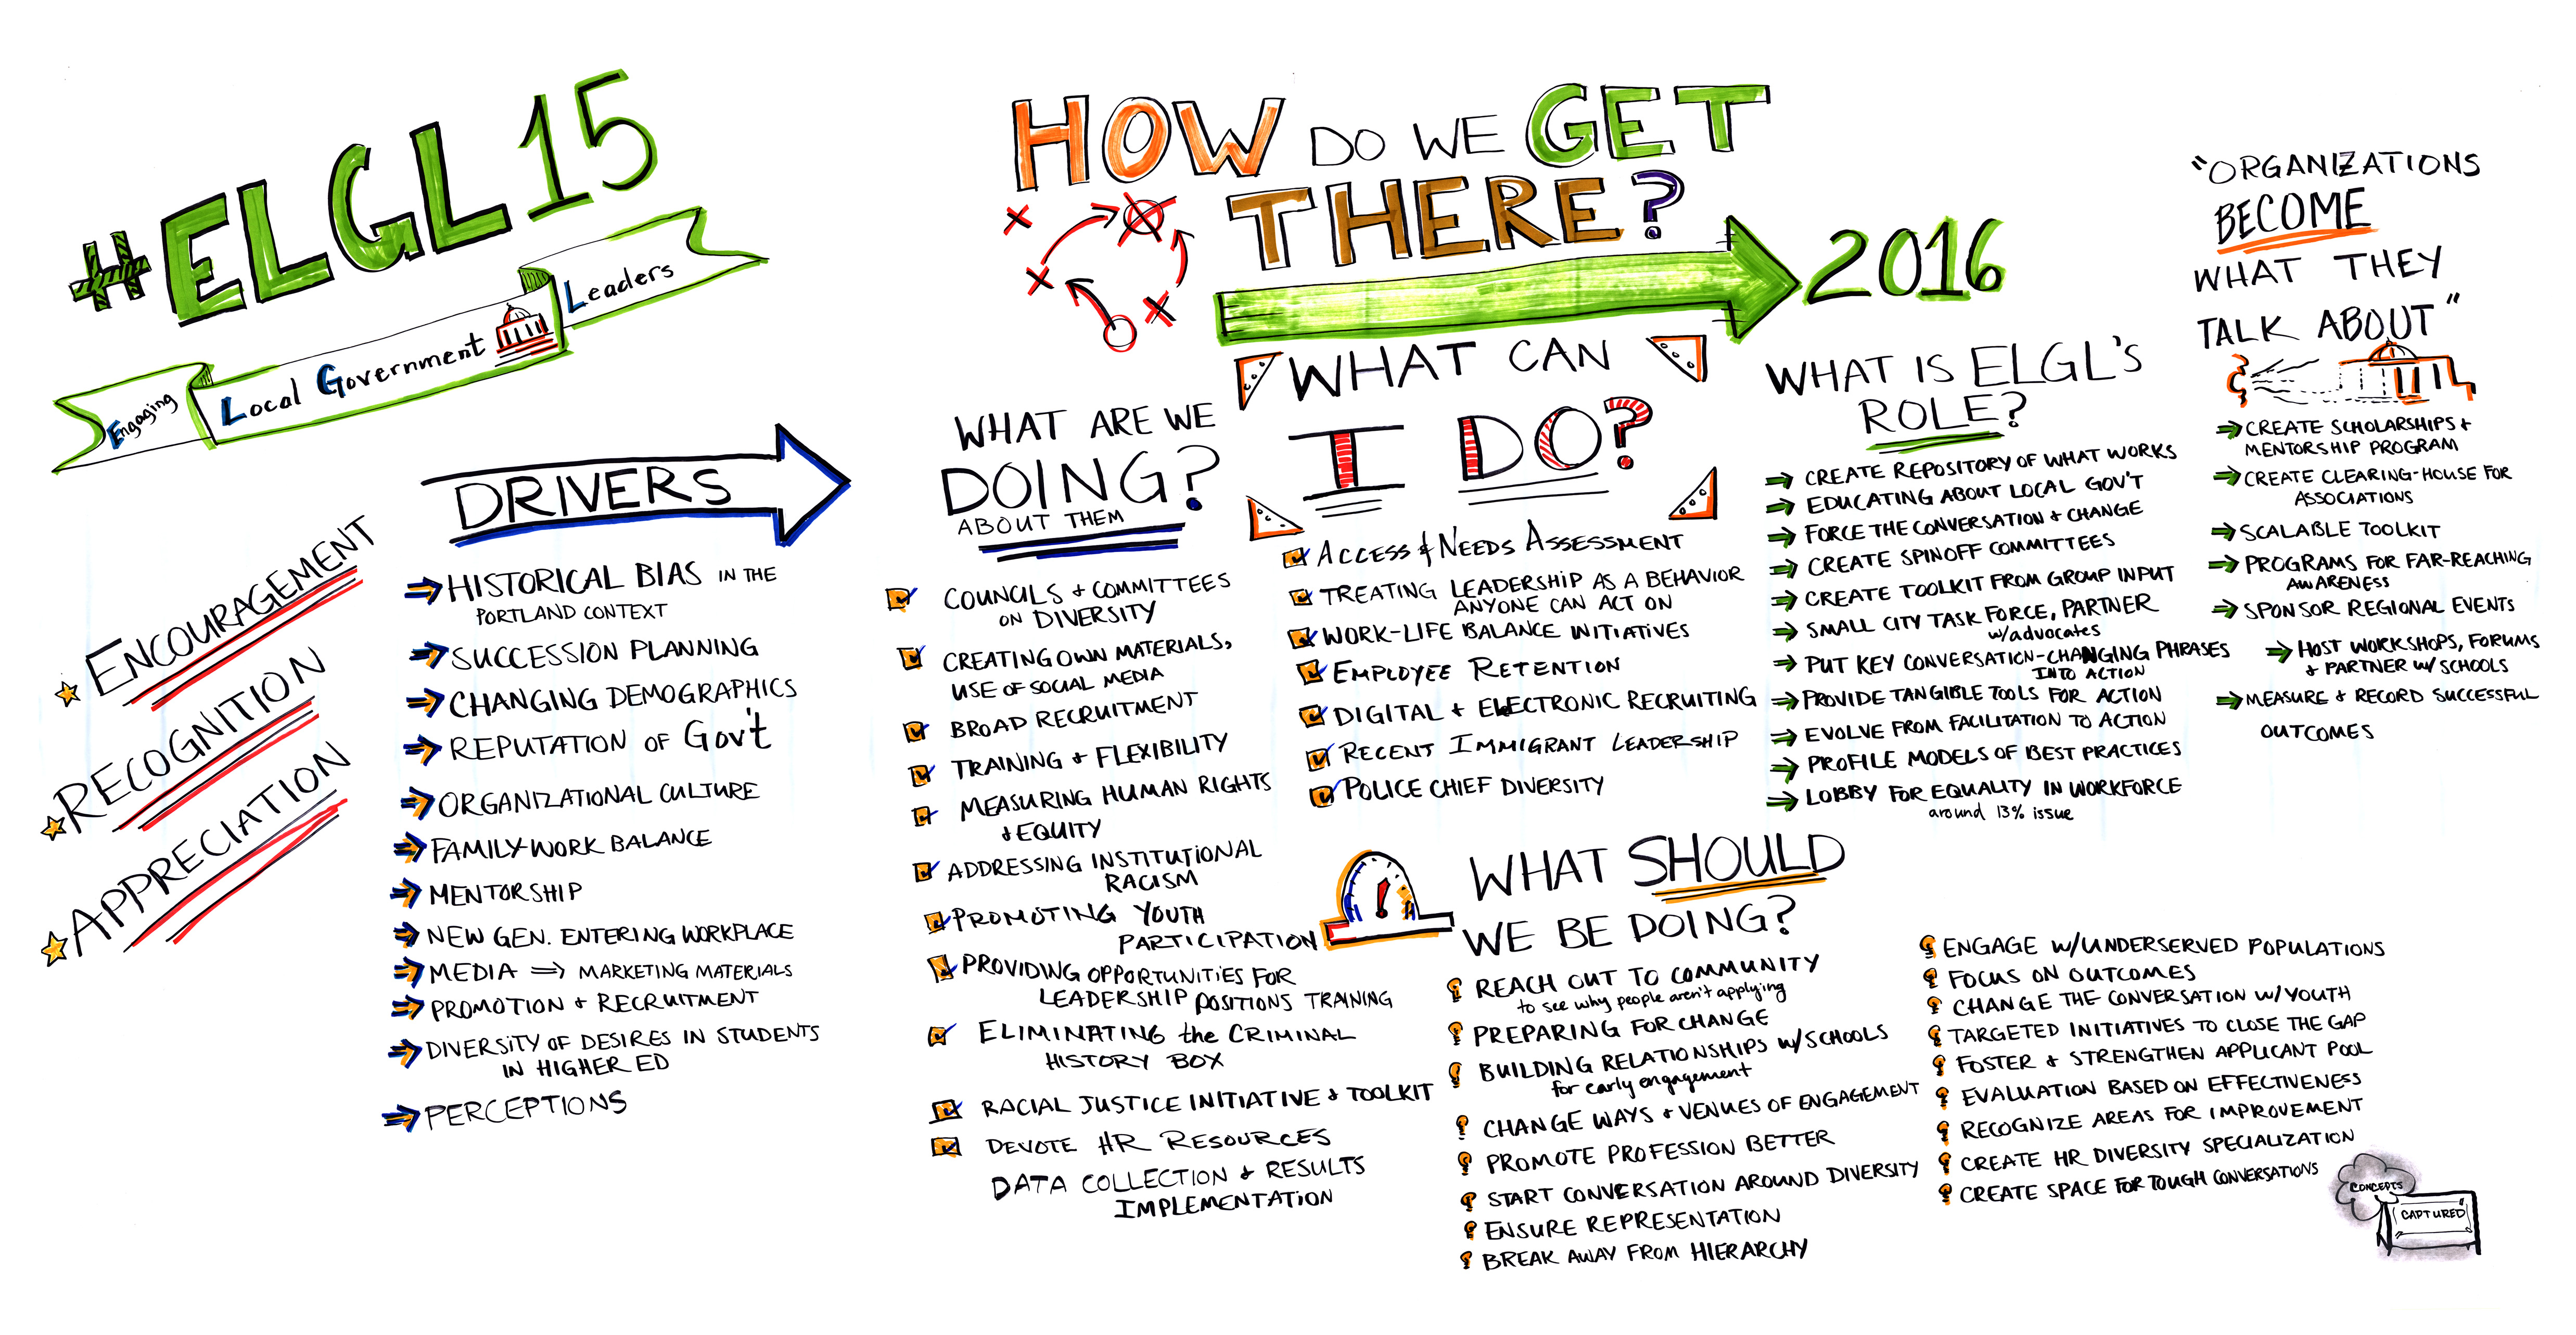 #ELGL15
Engaging
Local Government
Leaders
ENCOURAGEMENT
RECOGNITION
APPRECIATION
DRIVERS
HISTORICAL BIAS IN THE
PORTLAND CONTEXT
SUCCESSION PLANNING
CHANGING DEMOGRAPHICS
REPUTATION OF Gov't
ORGANIZATIONAL CULTURE
FAMILY-WORK BALANCE
MENTORSHIP
NEW GEN. ENTERING WORKPLACE
MEDIA ⇒ MARKETING MATERIALS
PROMOTION + RECRUITMENT
DIVERSITY OF DESIRES IN STUDENTS
IN HIGHER ED
PERCEPTIONS
HOW DO WE GET
THERE?
2016
WHAT ARE WE
DOING?
ABOUT THEM
COUNCILS + COMMITTEES
ON DIVERSITY
CREATING OWN MATERIALS,
USE OF SOCIAL MEDIA
BROAD RECRUITMENT
TRAINING + FLEXIBILITY
MEASURING HUMAN RIGHTS
+ EQUITY
ADDRESSING INSTITUTIONAL
RACISM
PROMOTING YOUTH
PARTICIPATION
PROVIDING OPPORTUNITIES FOR
LEADERSHIP POSITIONS TRAINING
ELIMINATING the CRIMINAL
HISTORY BOX
RACIAL JUSTICE INITIATIVE + TOOLKIT
DEVOTE HR RESOURCES
DATA COLLECTION + RESULTS
IMPLEMENTATION
WHAT CAN
I DO?
ACCESS & NEEDS ASSESSMENT
TREATING LEADERSHIP AS A BEHAVIOR
ANYONE CAN ACT ON
WORK-LIFE BALANCE INITIATIVES
EMPLOYEE RETENTION
DIGITAL + ELECTRONIC RECRUITING
RECENT IMMIGRANT LEADERSHIP
POLICE CHIEF DIVERSITY
WHAT IS ELGL'S
ROLE?
CREATE REPOSITORY OF WHAT WORKS
EDUCATING ABOUT LOCAL GOV'T
FORCE THE CONVERSATION + CHANGE
CREATE SPINOFF COMMITTEES
CREATE TOOLKIT FROM GROUP INPUT
SMALL CITY TASK FORCE, PARTNER
w/advocates
PUT KEY CONVERSATION-CHANGING PHRASES
INTO ACTION
PROVIDE TANGIBLE TOOLS FOR ACTION
EVOLVE FROM FACILITATION TO ACTION
PROFILE MODELS OF BEST PRACTICES
LOBBY FOR EQUALITY IN WORKFORCE
around 13% issue
"ORGANIZATIONS
BECOME
WHAT THEY
TALK ABOUT"
CREATE SCHOLARSHIPS +
MENTORSHIP PROGRAM
CREATE CLEARING-HOUSE FOR
ASSOCIATIONS
SCALABLE TOOLKIT
PROGRAMS FOR FAR-REACHING
AWARENESS
SPONSOR REGIONAL EVENTS
HOST WORKSHOPS, FORUMS
+ PARTNER W/ SCHOOLS
MEASURE + RECORD SUCCESSFUL
OUTCOMES
WHAT SHOULD
WE BE DOING?
REACH OUT TO COMMUNITY
to see why people aren't applying
PREPARING FOR CHANGE
BUILDING RELATIONSHIPS W/SCHOOLS
for early engagement
CHANGE WAYS + VENUES OF ENGAGEMENT
PROMOTE PROFESSION BETTER
START CONVERSATION AROUND DIVERSITY
ENSURE REPRESENTATION
BREAK AWAY FROM HIERARCHY
ENGAGE W/UNDERSERVED POPULATIONS
FOCUS ON OUTCOMES
CHANGE THE CONVERSATION W/YOUTH
TARGETED INITIATIVES TO CLOSE THE GAP
FOSTER + STRENGTHEN APPLICANT POOL
EVALUATION BASED ON EFFECTIVENESS
RECOGNIZE AREAS FOR IMPROVEMENT
CREATE HR DIVERSITY SPECIALIZATION
CREATE SPACE FOR TOUGH CONVERSATIONS
CONCEPTS
CAPTURED